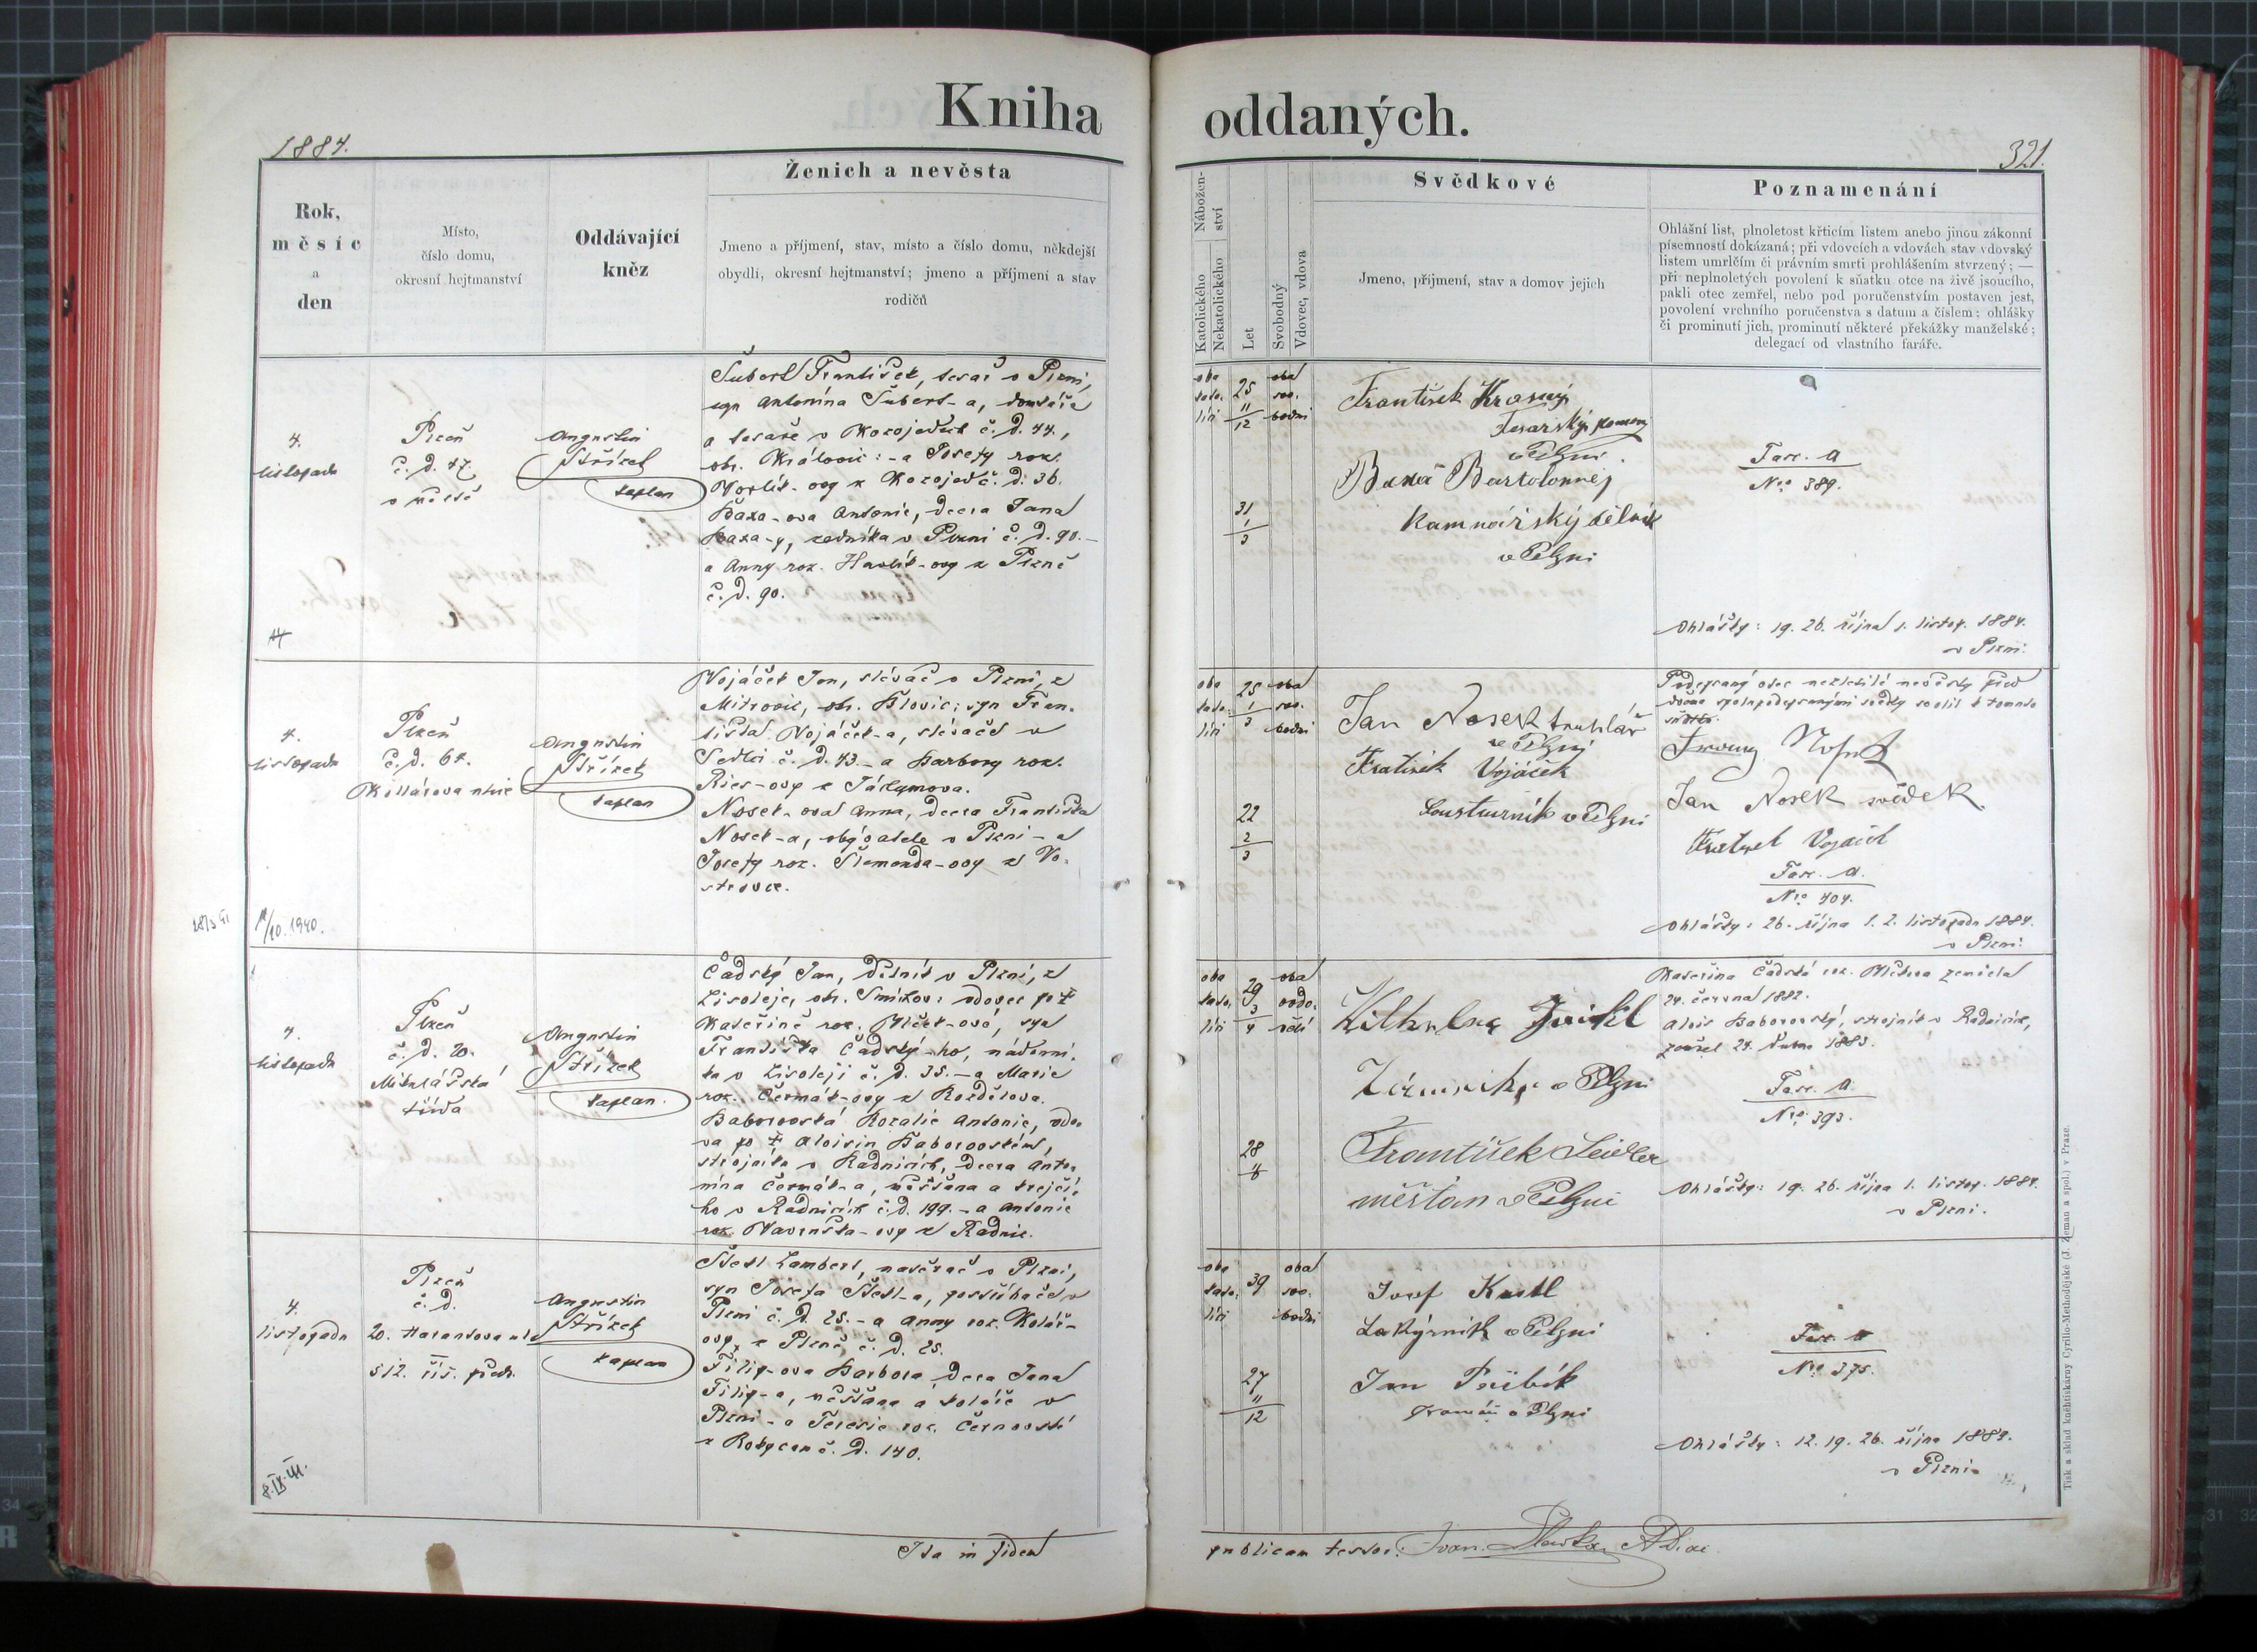 Kniha oddaných.
1884.
321.
Rok,
měsíc
a
den
Místo,
číslo domu,
okresní hejtmanství
Oddávající
kněz
Ženich a nevěsta
Jmeno a příjmení, stav, místo a číslo domu, někdejší
obydlí, okresní hejtmanství; jmeno a příjmení a stav
rodičů
Nábožen-
ství
Katolického
Nekatolického
Let
Svobodný
Vdovec, vdova
Svědkové
Jmeno, příjmení, stav a domov jejich
Poznamenání
Ohlášní list, plnoletost křticím listem anebo jinou zákonní
písemností dokázaná; při vdovcích a vdovách stav vdovský
listem umrlčím či právním smrti prohlášením stvrzený; —
při neplnoletých povolení k sňatku otce na živě jsoucího,
pakli otec zemřel, nebo pod poručenstvím postaven jest,
povolení vrchního poručenstva s datum a číslem; ohlášky
či prominutí jich, prominutí některé překážky manželské;
delegací od vlastního faráře.
4.
listopadu
Plzeň
č. d. 47.
v městě
Augustin
Střízek
kaplan
Šubert František, tesař v Plzni,
syn Antonína Šubert-a, domkáře
a tesaře v Kozojedech č. d. 44.,
okr. Kralovic: - a Josefy roz.
Vorlík-ovy z Kozojed č. d. 36.
Baxa-ova Antonie, dcera Jana
Baxa-y, zedníka v Plzni č. d. 90. -
a Anny roz. Havlík-ovy z Plzně
č. d. 90.
oba
kato-
líci
25
11
12
oba
svo-
bodni
31
1
3
František Krasný
Tesarský pomoc
v Plzni.
Baxa Bartolomněj
Kamnářský dělník
v Plzni
Fasc. A
Nro 389.
Ohlášky: 19. 26. října 1. listop. 1884.
v Plzni.
4.
listopadu
Plzeň
č. d. 64.
Kollárova ulice
Augustin
Střízek
kaplan
Vojáček Jan, slévač v Plzni, z
Mitrovic, okr. Blovic: syn Fran-
tiška Vojáček-a, slévače v
Sedlci č. d. 43. - a Barbory roz.
Ries-ovy z Jáchymova.
Nosek-ova Anna, dcera Františka
Nosek-a, obývatele v Plzni - a
Josefy roz. Slemenda-ovy z Vo-
strovce.
10. 1940.
oba
kato-
líci
25
1
3
oba
svo-
bodni
22
2
3
Jan Nosek truhlář
v Plzni
Fratisek Vojáček
Soustrurník v Plzni
Podepsaný otec nezletilé nevěsty před
dvěma spolupodepsanými svědky svolil k tomuto
sňatku.
Jan Nosek svědek.
Fasc. A.
Nro 404.
Ohlášky: 26. října 1. 2. listopadu 1884.
v Plzni.
4.
listopadu
Plzeň
č. d. 20.
Mikulášská
třída
Augustin
Střízek
kaplan.
Čadský Jan, dělník v Plzni, z
Lisoleje, okr. Smíchov: vdovec po †
Kateřině roz. Vlček-ové, syn
Františka Čadský-ho, nádenní-
ka v Lisoleji č. d. 35. - a Marie
roz. Čermák-ovy z Rozdělova.
Baborovská Rozalie Antonie, vdo-
va po † Aloisiu Baborovském,
strojníku v Radnicích, dcera Anto-
nína Čermák-a, měšťana a krejčí-
ho v Radnicích č. d. 199. - a Antonie
roz. Vavruška-ovy z Radnic.
oba
kato-
líci
29
3
4
oba
vdo-
vělí
28
František Seidler
měšťan v Plzni
v Plzni
Kateřina Čadská roz. Vlčkova zemřela
24. června 1882.
Alois Baborovský, strojník v Radnicích,
zemřel 24. dubna 1883.
Fasc. A.
Nro 393.
Ohlášky: 19. 26. října 1. listop. 1884.
v Plzni.
4.
listopadu
Plzeň
č. d.
20. Harantova ul.
512. říš. předm.
Augustin
Střízek
kaplan
Šestl Lambert, natěrač v Plzni,
syn Josefa Šestl-a, posluhače v
Plzni č. d. 25. - a Anny roz. Kolář-
ovy, z Plzně č. d. 25.
Filip-ova Barbora dcera Jana
Filip-a, měšťana a koláře v
Plzni - a Terezie roz. Černovské
z Rokycan č. d. 140.
8. IX. 41.
oba
kato-
líci
39
oba
svo-
bodni
27
11
12
Josef Kastl
Lakýrník v Plzni
Jan
v Plzni
Fasc. A
Nro 375.
Ohlášky: 12. 19. 26. října 1884.
v Plzni
Ita in fidem publicam testor:
Tisk a sklad knihtiskárny Cyrillo-Methodějské (J. Zeman a spol.) v Praze.